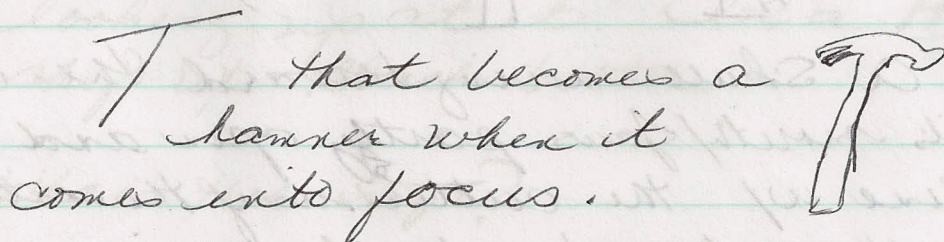 T that becomes a
hammer when it
comes into focus.